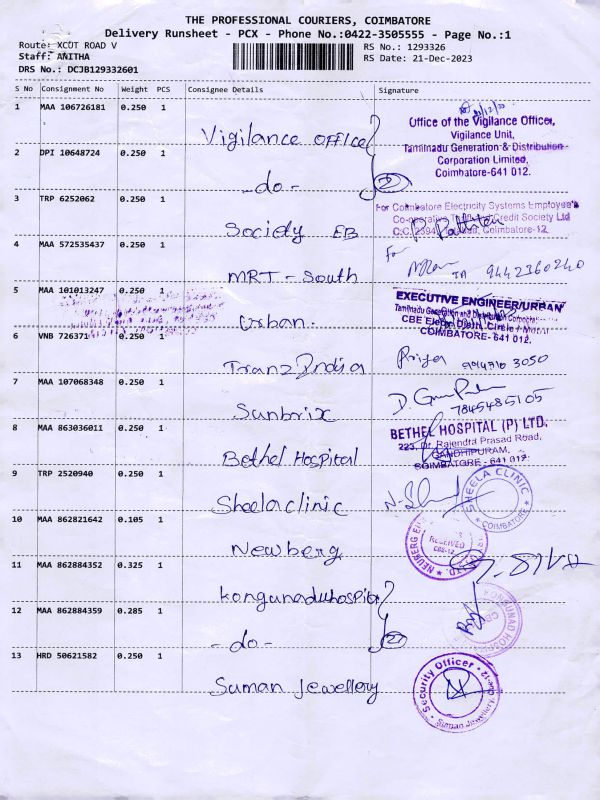 THE PROFESSIONAL COURIERS, COIMBATORE
Delivery Runsheet - PCX - Phone No.:0422-3505555 - Page No.:1
Route: XCUT ROAD V
Staff: ANITHA
DRS No.: DCJB129332601
RS No.: 1293326
RS Date: 21-Dec-2023
S No Consignment No Weight PCS Consignee Details Signature
1 MAA 106726181 0.250 1 Vigilance office
Office of the Vigilance Officer,
Vigilance Unit,
Tamilnadu Generation & Distribution
Corporation Limited,
Coimbatore-641 012.
2 DPI 10648724 0.250 1 -do-
3 TRP 6252062 0.250 1 Society EB
For Coimbatore Electricity Systems Employee's
Co-operative Credit Society Ltd
Coimbatore-12
4 MAA 572535437 0.250 1 MRT - South
For
9442360240
5 MAA 101013247 0.250 1 Urban
EXECUTIVE ENGINEER/URBAN
Tamilnadu Generation and Distribution Corporation
CBE Elecy. Distn. Circle / Metro
COIMBATORE- 641 012.
6 VNB 726371 0.250 1 Tranz India
Priya 3050
7 MAA 107068348 0.250 1 Sunbrix
7845485105
8 MAA 863036011 0.250 1 Bethel Hospital
BETHEL HOSPITAL (P) LTD.
223, Dr. Rajendra Prasad Road,
GANDHIPURAM,
COIMBATORE - 641 012.
9 TRP 2520940 0.250 1 Sheela clinic
SHEELA CLINIC
COIMBATORE
10 MAA 862821642 0.105 1 Newberg
RECEIVED
11 MAA 862884352 0.325 1 Kongunadu hospital
12 MAA 862884359 0.285 1 -do-
KONGUNAD HOSP
13 HRD 50621582 0.250 1 Suman Jewellery
Security Officer
Suman Jewellery